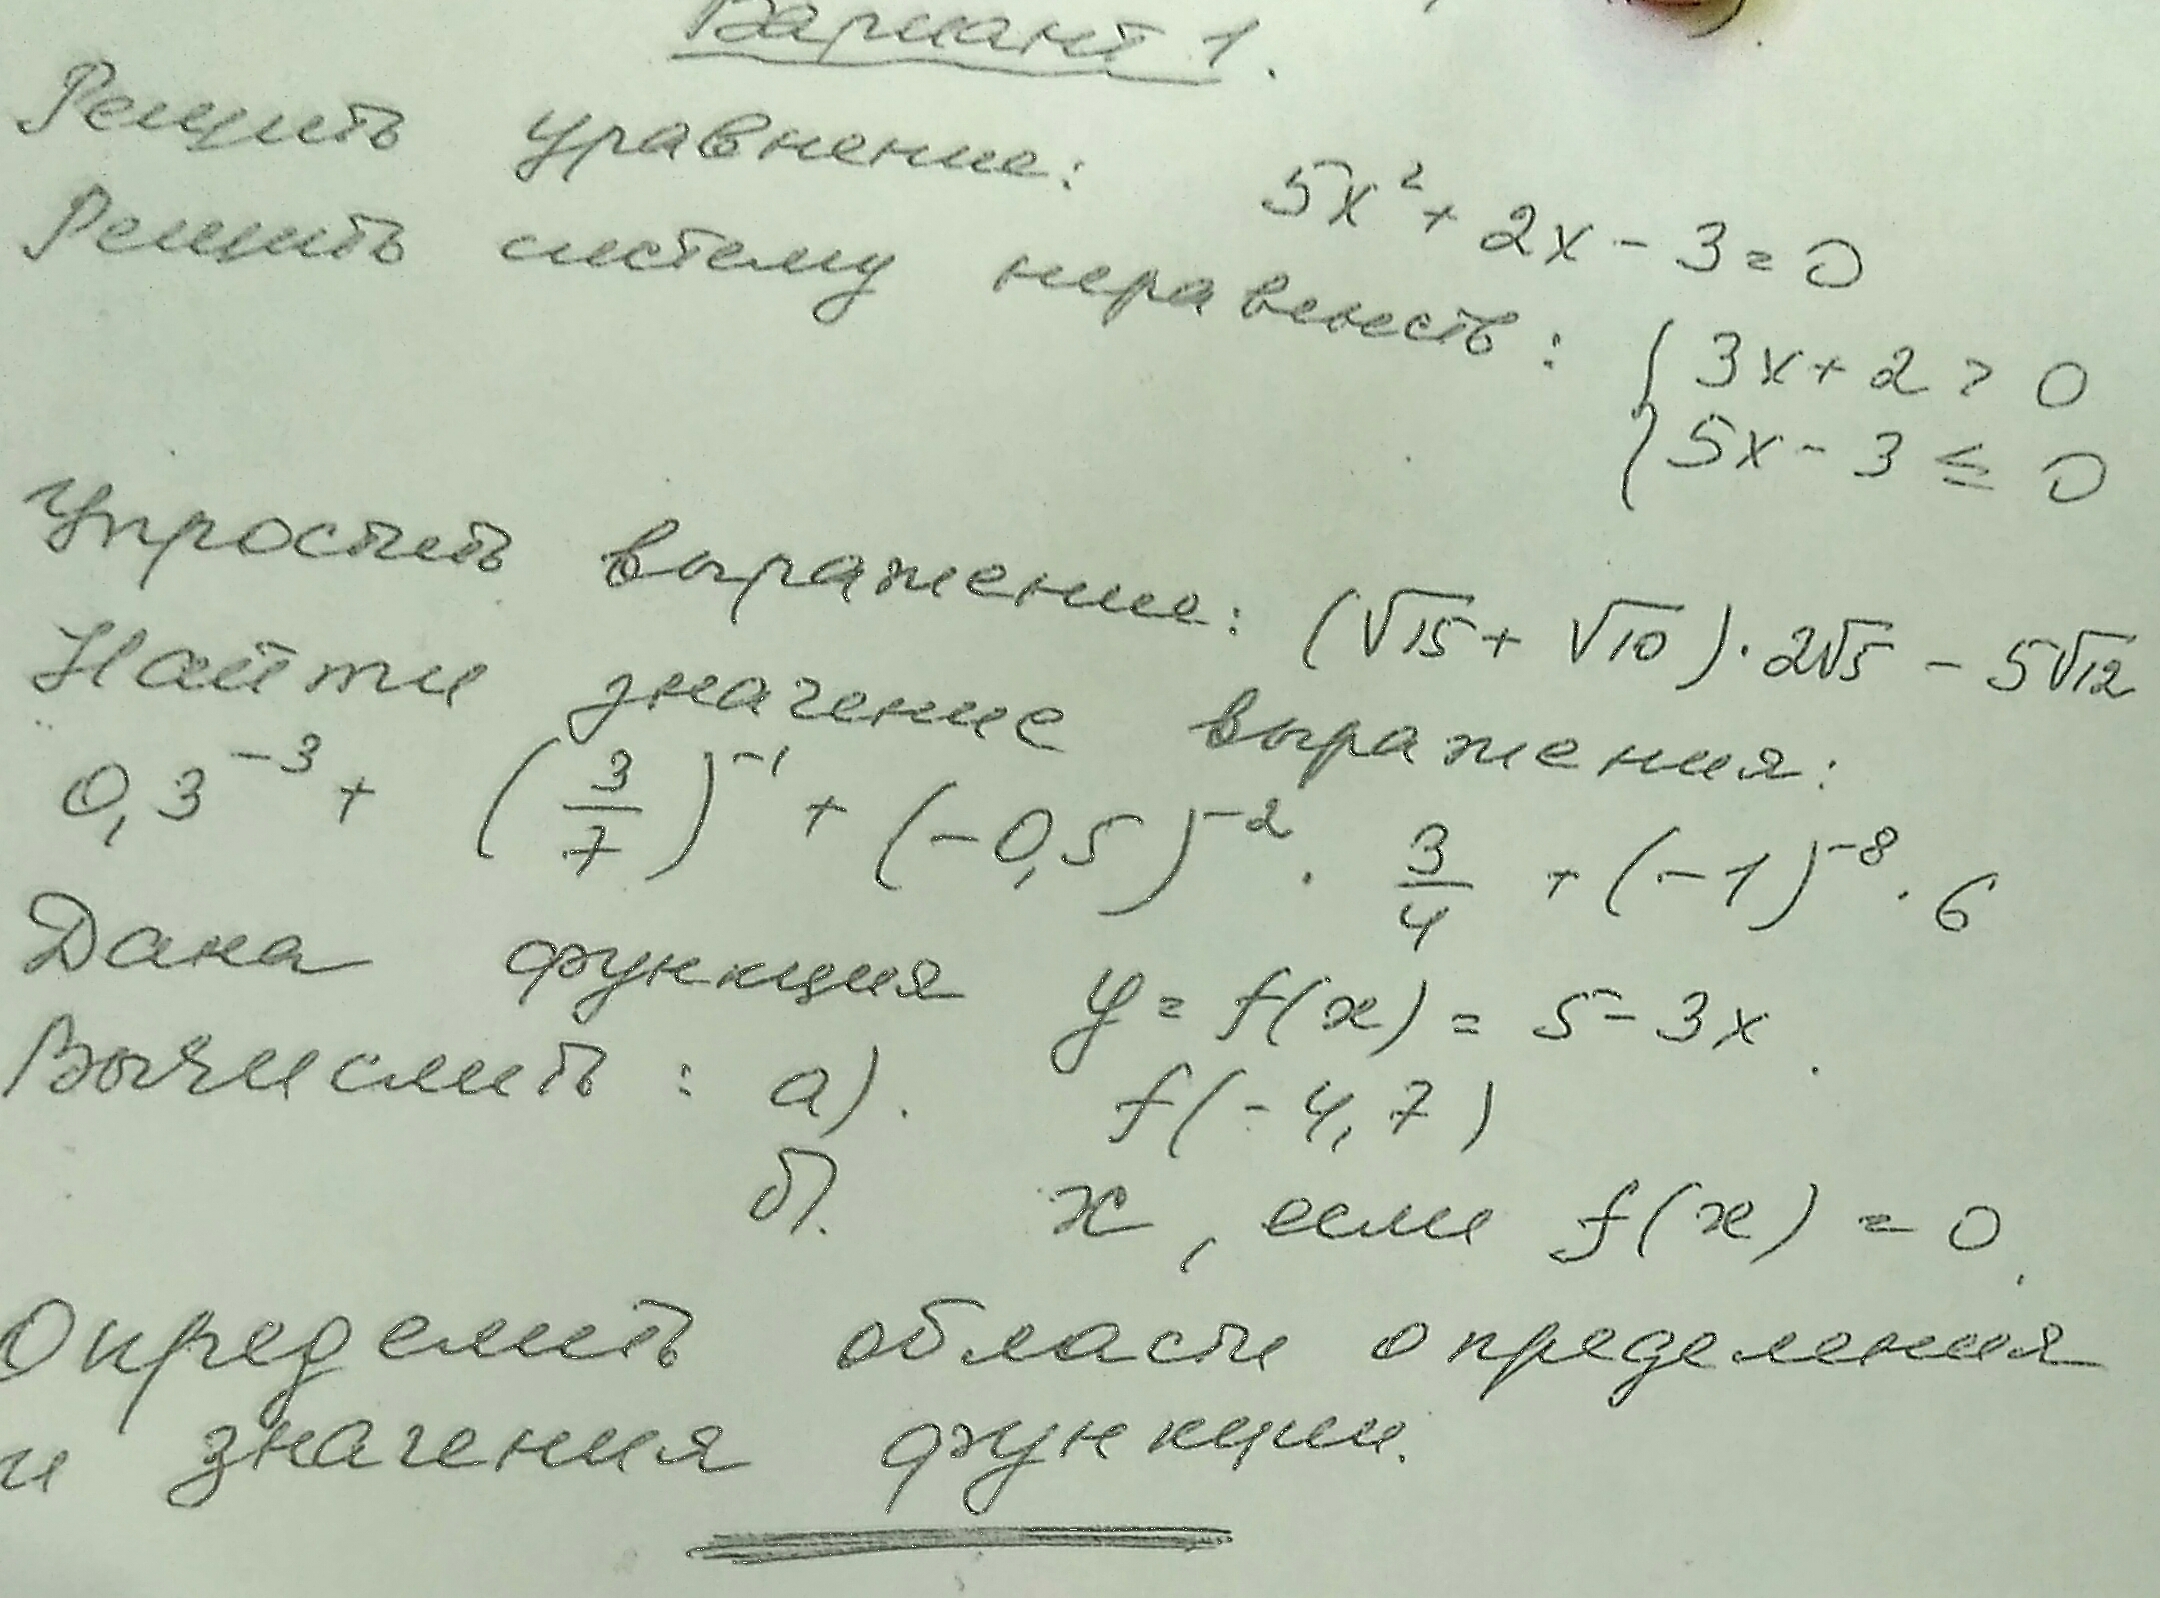 Вариант 1.
Решить уравнение: 5x² + 2x - 3 = 0
Решить систему неравенств: { 3x + 2 > 0
{ 5x - 3 ≤ 0
Упростить выражение: (√15 + √10) · 2√5 - 5√12
Найти значение выражения:
0,3⁻³ + (3/7)⁻¹ + (-0,5)⁻² · 3/4 + (-1)⁻⁸ · 6
Дана функция y = f(x) = 5 - 3x.
Вычислить: а). f(-4,7)
б). x, если f(x) = 0.
Определить области определения
и значения функции.